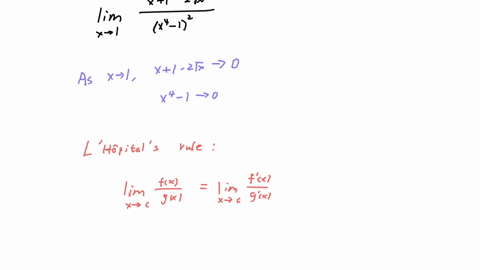 lim x→1 x+1-2√x / (x⁴-1)²
As x→1, x+1-2√x → 0
x⁴-1 → 0
L'Hôpital's rule:
lim x→c f(x)/g(x) = lim x→c f'(x)/g'(x)